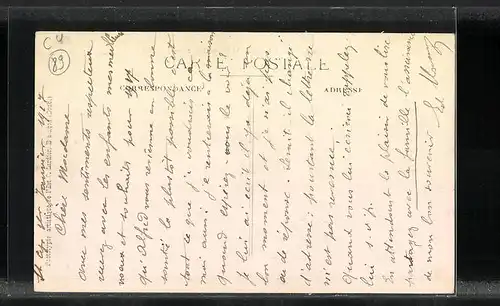 CARTE POSTALE
CORRESPONDANCE
ADRESSE
29
le 1er janvier 1917
Chère Madame
avec mes sentiments respectueux
recevez avec les enfants mes meilleurs
vœux et souhaits pour 1917
qu'Alfred vous revienne en bonne
santé le plutôt possible c'est
tout ce que je voudrais
moi aussi je rentrerais
quand aurez vous le
je lui ai écrit il y a déjà un
bon moment et je n'ai pas
eu de réponse. Serait il changé
d'adresse; pourtant la lettre ne
m'est pas revenue.
Quand vous lui écrirez rappelez
lui s.v.p.
En attendant le plaisir de vous lire
partagez avec la famille l'assurance
de mon bon souvenir